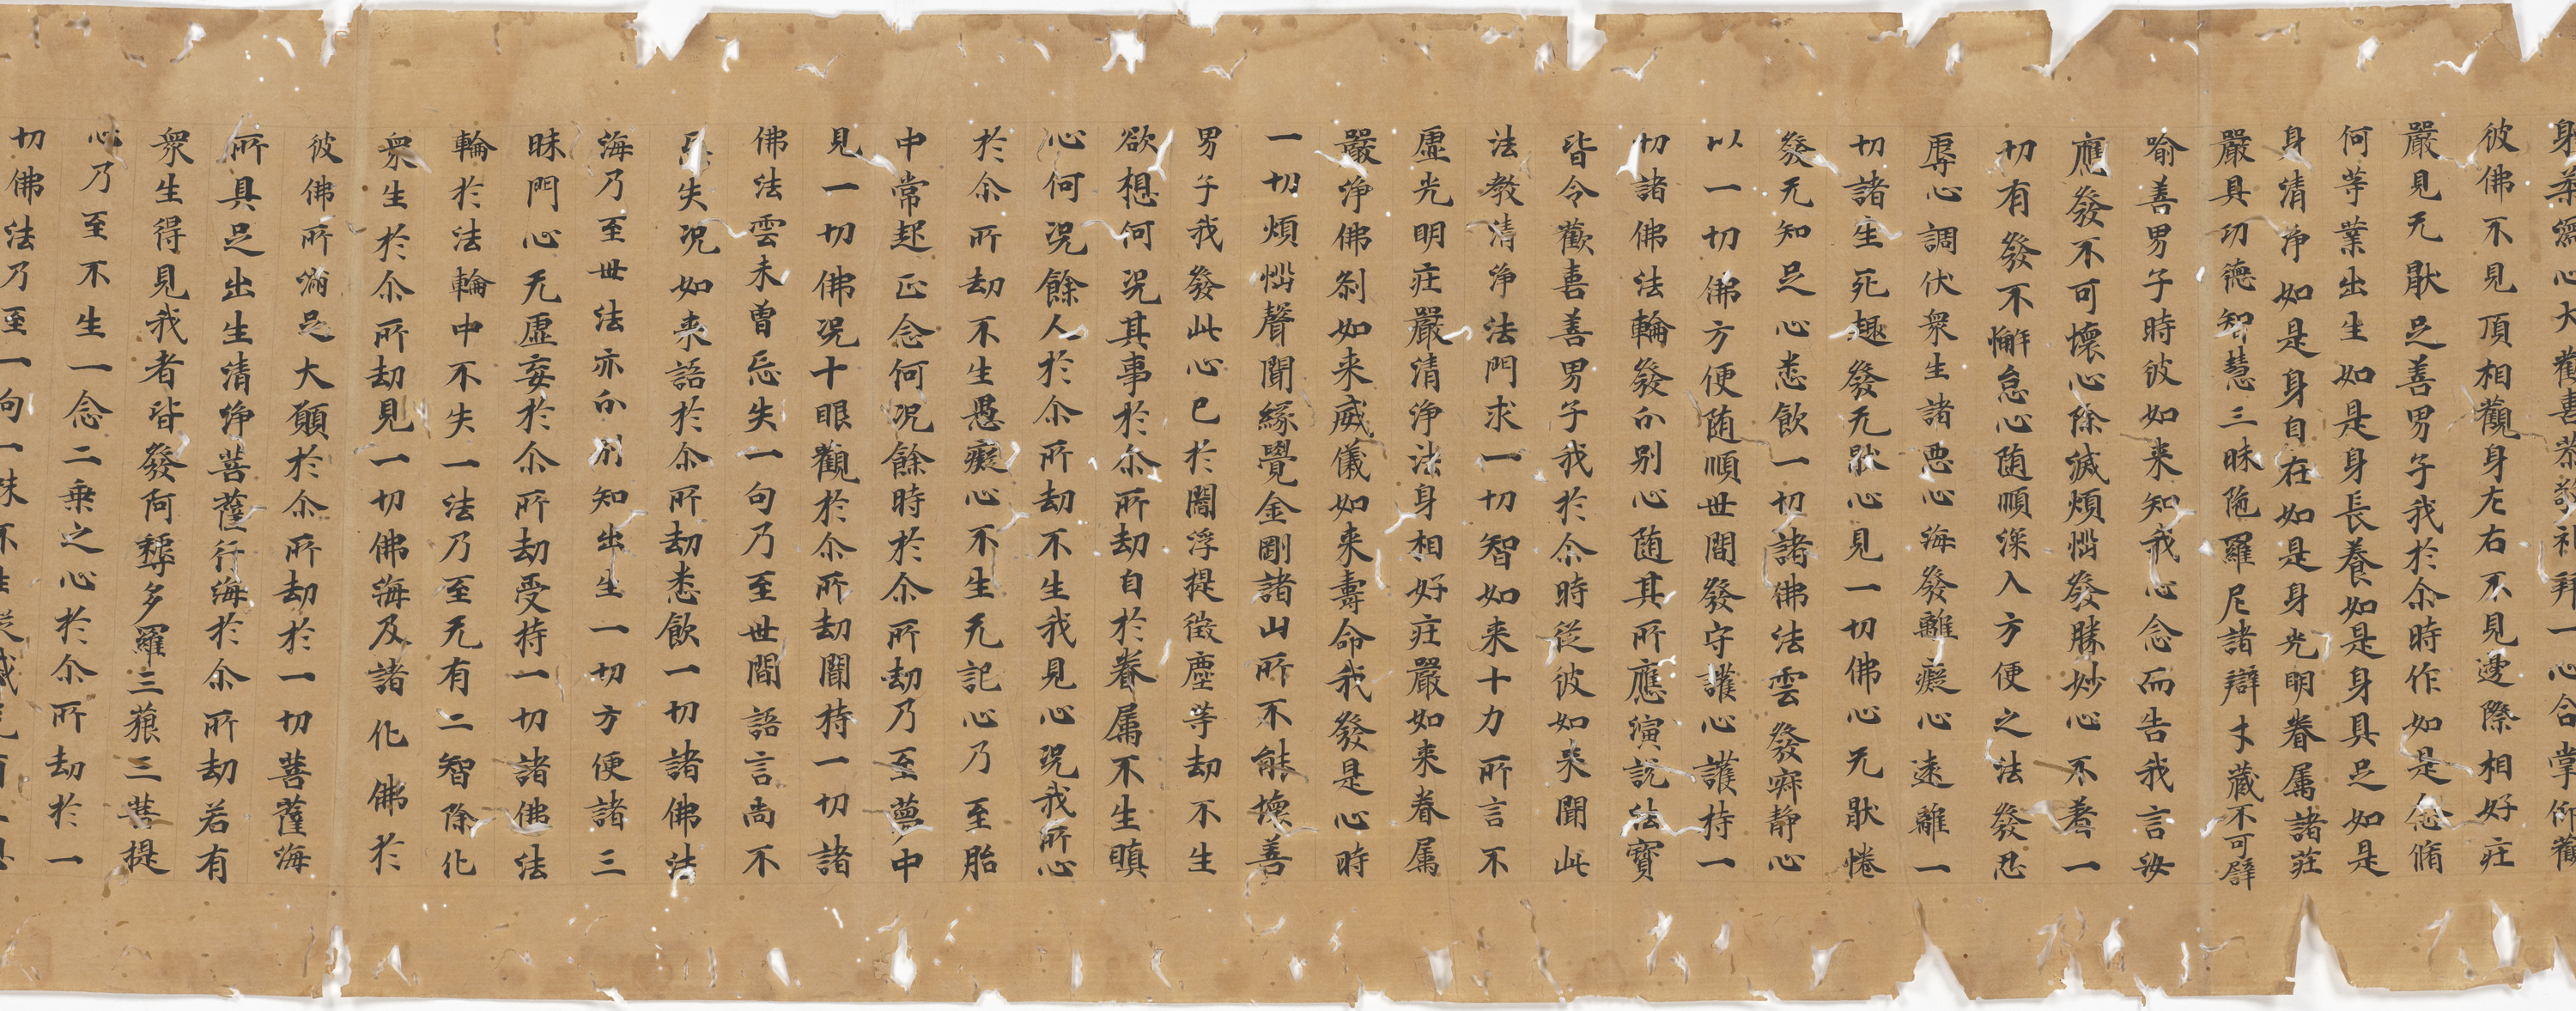 身柔濡心大歡喜恭敬礼拜一心合掌仰觀
彼佛不見頂相觀身左右不見邊際相好庄
嚴見无猒足善男子我於尒時作如是念脩
何等業出生如是身長養如是身具足如是
身清淨如是身自在如是身光明眷属諸莊
嚴具功德智慧三昧陁羅尼諸辯才藏不可譬
喻善男子時彼如来知我心念而告我言汝
應發不可壞心除滅煩惱發勝妙心不著一
切有發不懈怠心随順深入方便之法發忍
辱心調伏衆生諸惡心海發離癡心遠離一
切諸生死趣發无猒心見一切佛心无猒惓
發无知足心悉飲一切諸佛法雲發寂静心
以一切佛方便随順世間發守護心護持一
切諸佛法輪發分别心随其所應演說法寶
皆令歡喜善男子我於尒時從彼如来聞此
法教清淨法門求一切智如来十力所言不
虛光明庄嚴清淨法身相好庄嚴如来眷属
嚴淨佛刹如来威儀如来壽命我發是心時
一切煩惱聲聞緣覺金剛諸山所不能壞善
男子我發此心已於閻浮提微塵等劫不生
欲想何况其事於尒所劫自於眷属不生瞋
心何况餘人於尒所劫不生我見心况我所心
於尒所劫不生愚癡心不生无記心乃至胎
中常起正念何况餘時於尒所劫乃至夢中
見一切佛况十眼觀於尒所劫聞持一切諸
佛法雲未曾忘失一句乃至世間語言尚不
忘失况如来語於尒所劫悉飲一切諸佛法
海乃至世法亦分别知出生一切方便諸三
昧門心无虛妄於尒所劫受持一切諸佛法
輪於法輪中不失一法乃至无有二智除化
衆生於尒所劫見一切佛海及諸化佛於
彼佛所滿足大願於尒所劫於一切菩薩海
所具足出生清淨菩薩行海於尒所劫若有
衆生得見我者皆發阿耨多羅三藐三菩提
心乃至不生一念二乗之心於尒所劫於一
切佛法乃至一句一味不生疑惑